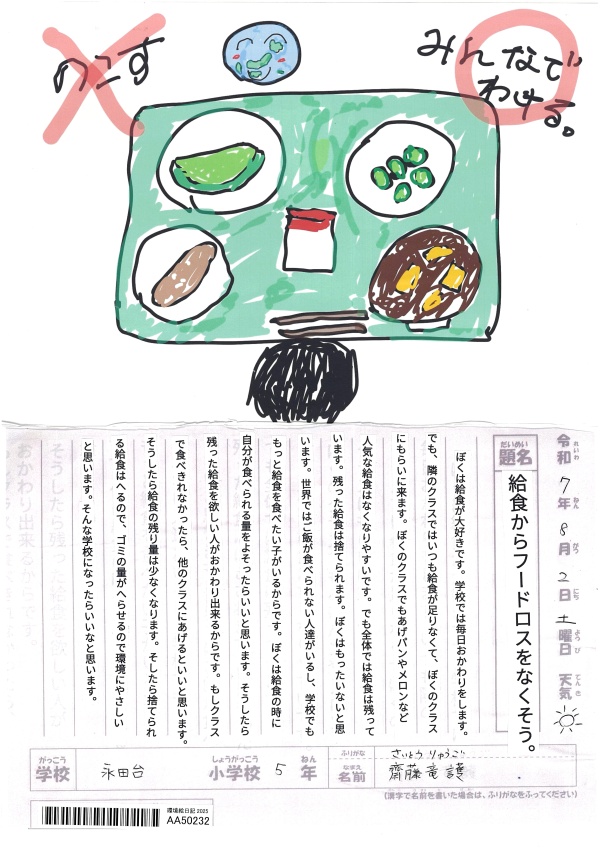 のこす
みんなで
わける。
令和7年8月2日土曜日 天気
れいわ ねん がつ にち ようび てんき
だいめい
題名
給食からフードロスをなくそう。
ぼくは給食が大好きです。学校では毎日おかわりをします。
でも、隣のクラスではいつも給食が足りなくて、ぼくのクラス
にもらいに来ます。ぼくのクラスでもあげパンやメロンなど
人気な給食はなくなりやすいです。でも全体では給食は残って
います。残った給食は捨てられます。ぼくはもったいないと思
います。世界ではご飯が食べられない人達がいるし、学校でも
もっと給食を食べたい子がいるからです。ぼくは給食の時に
自分が食べられる量をよそったらいいと思います。そうしたら
残った給食を欲しい人がおかわり出来るからです。もしクラス
で食べきれなかったら、他のクラスにあげるといいと思います。
そうしたら給食の残り量は少なくなります。そしたら捨てられ
る給食はへるので、ゴミの量がへらせるので環境にやさしい
と思います。そんな学校になったらいいなと思います。
がっこう しょうがっこう ねん ふりがな さいとう りゅうご
学校 永田台 小学校 5年 なまえ 名前 齊藤竜護
(漢字で名前を書いた場合は、ふりがなをふってください)
環境絵日記 2025
AA50232